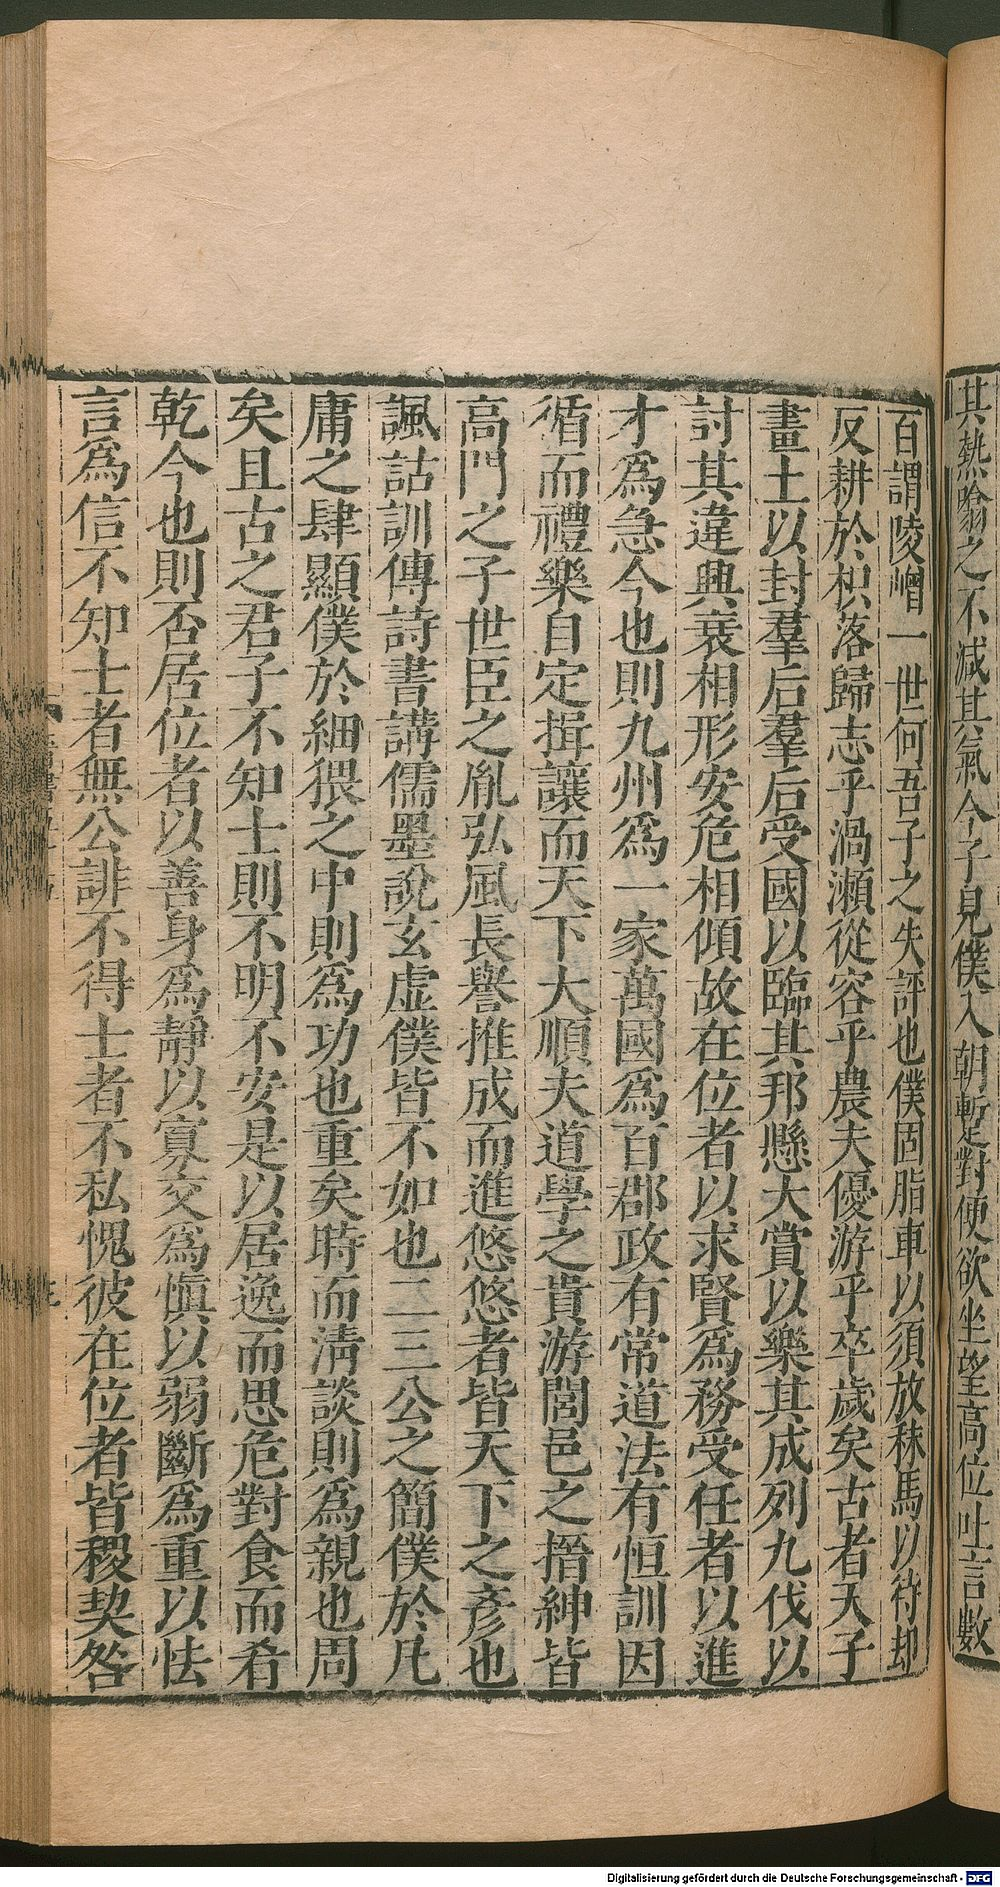 其熱噏之不減其氣今子見僕入朝暫對便欲坐望高位吐言數
百謂陵嶒一世何吾子之失評也僕固脂車以須放秣馬以待却
反耕於枳落歸志乎渦瀨從容乎農夫優游乎卒歲矣古者天子
畫土以封羣后羣后受國以臨其邦懸大賞以樂其成列九伐以
討其違興衰相形安危相傾故在位者以求賢為務受任者以進
才為急今也則九州為一家萬國為百郡政有常道法有恒訓因
循而禮樂自定揖讓而天下大順夫道學之貴游閭邑之搢紳皆
高門之子世臣之胤弘風長譽推成而進悠悠者皆天下之彥也
諷詁訓傳詩書講儒墨說玄虛僕皆不如也二三公之簡僕於凡
庸之肆顯僕於細猥之中則為功也重矣時而清談則為親也周
矣且古之君子不知士則不明不安是以居逸而思危對食而肴
乾今也則否居位者以善身為靜以寡交為慎以弱斷為重以怯
言為信不知士者無公誹不得士者不私愧彼在位者皆稷契咎
Digitalisierung gefördert durch die Deutsche Forschungsgemeinschaft - DFG